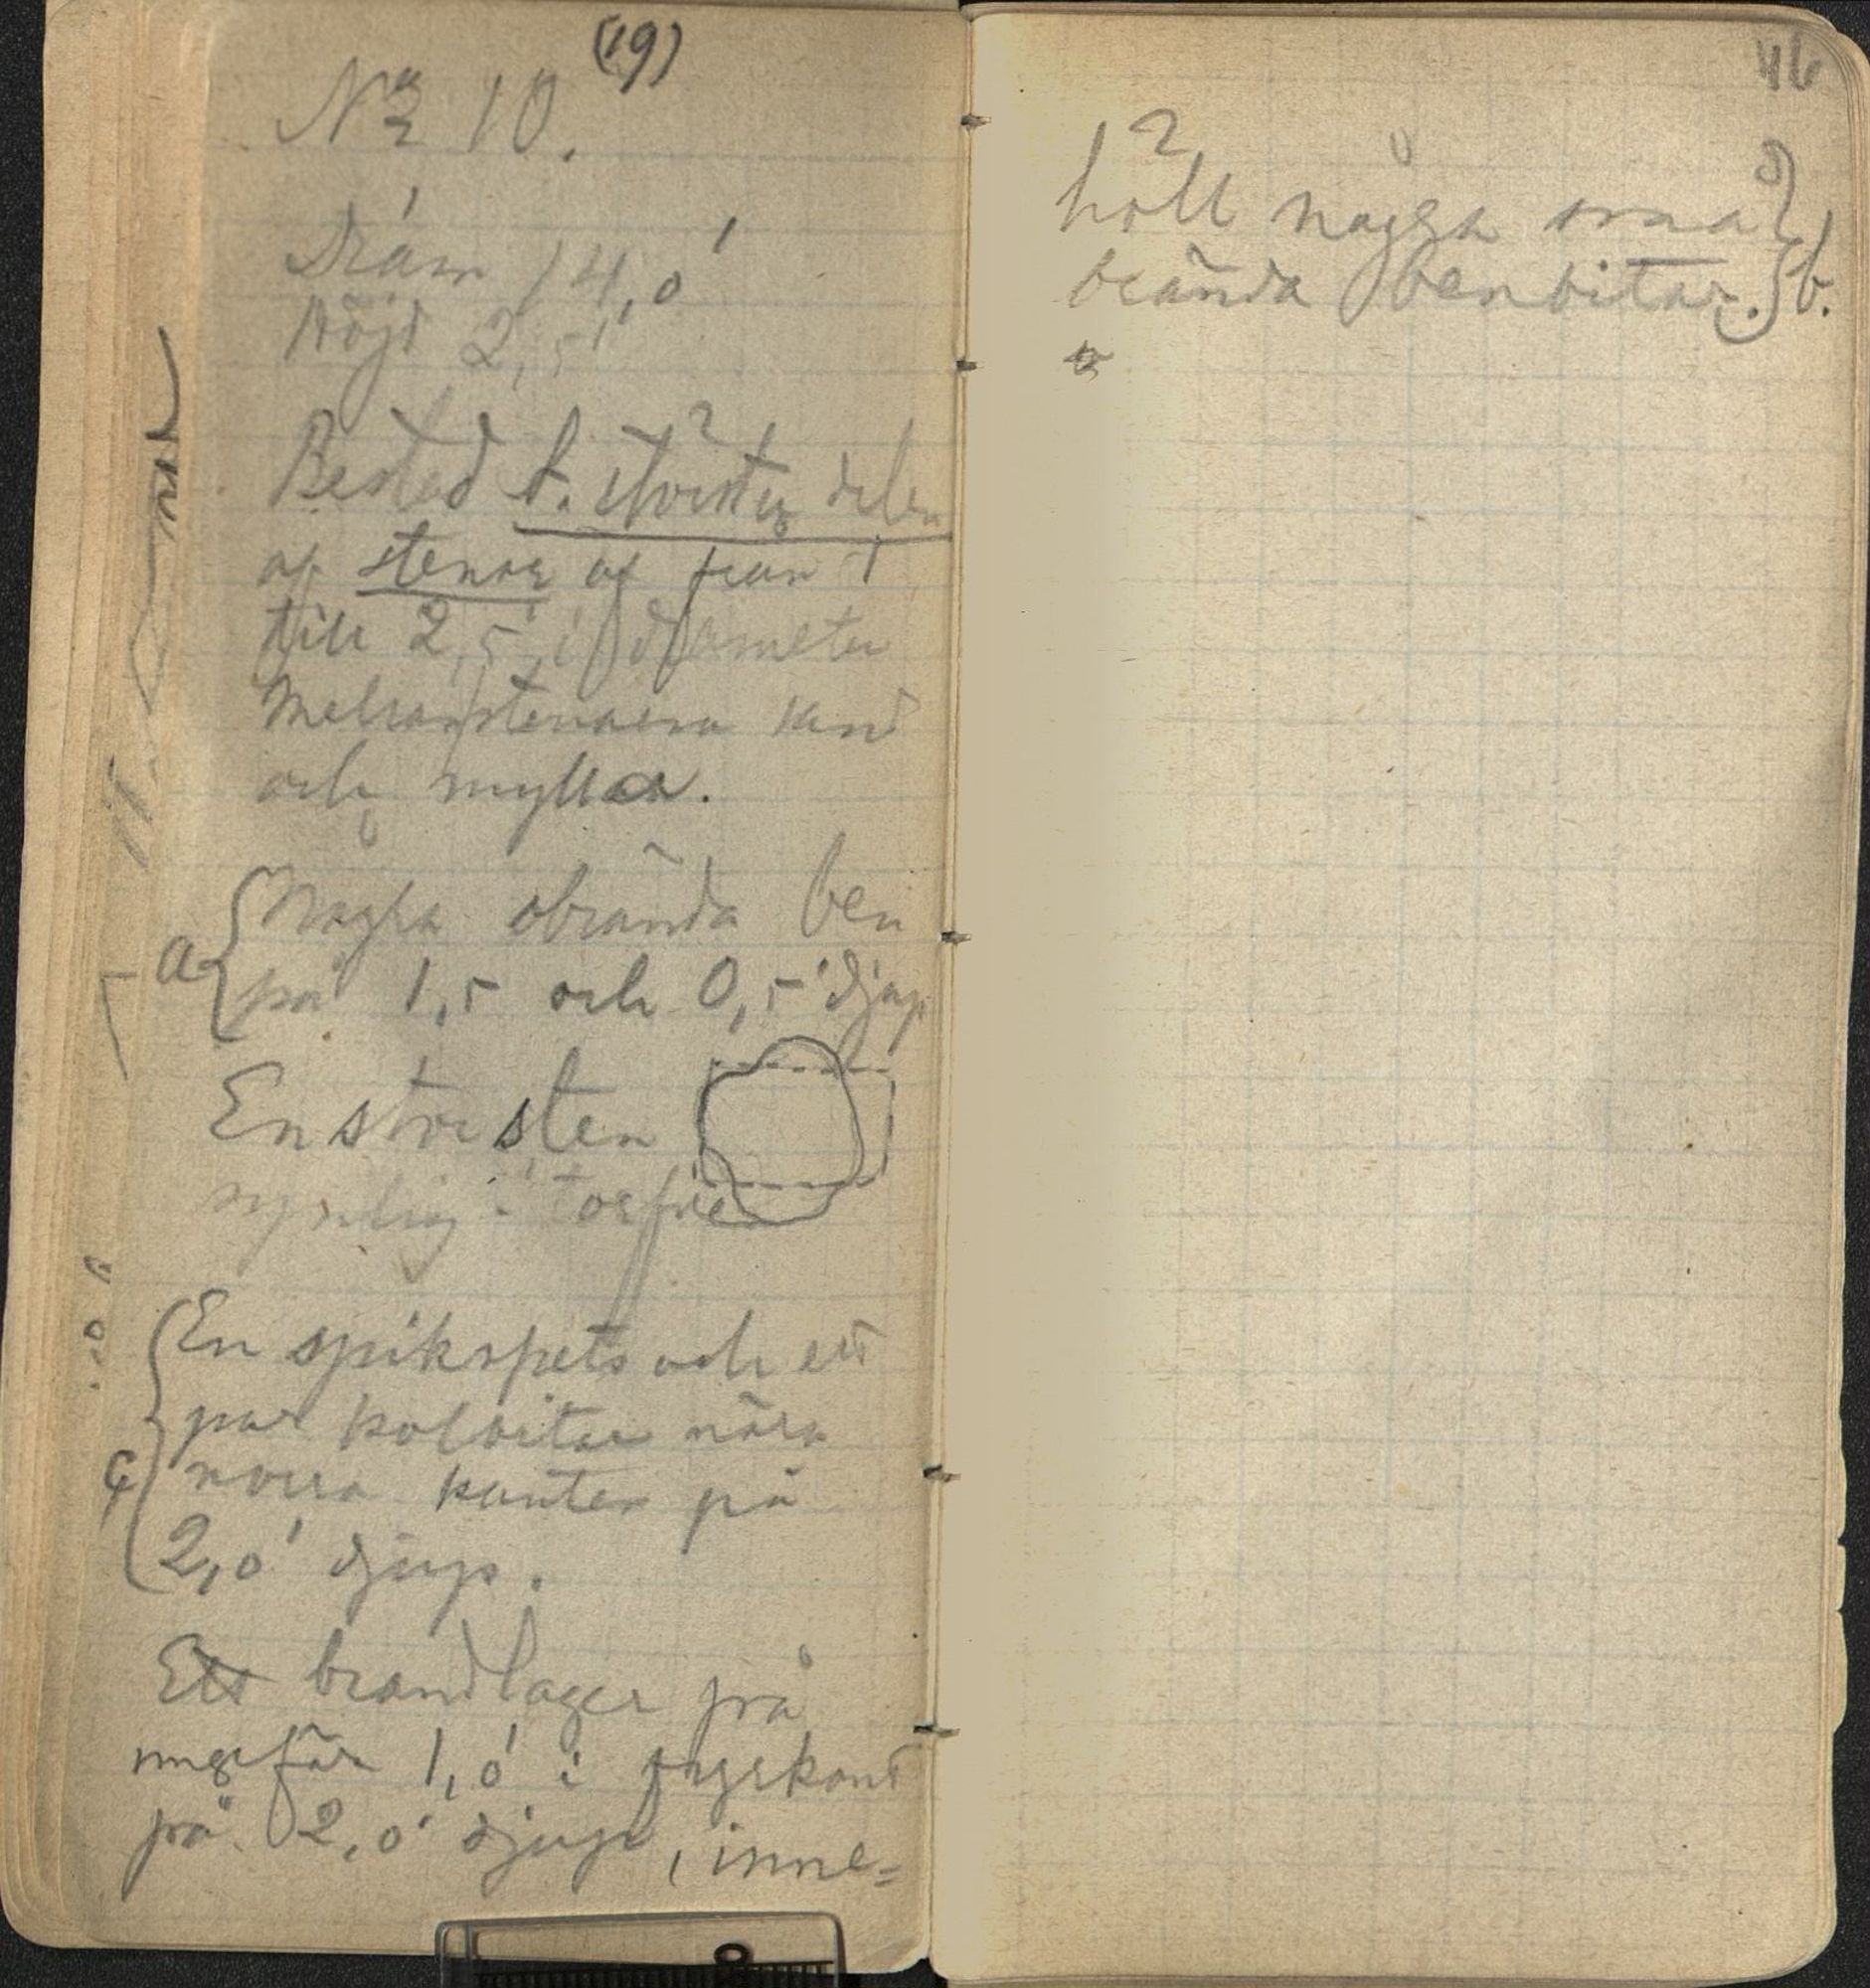 (19)
No 10.
Diam 14,0'
Höjd 2,5'
Bestod t. största delen
af stenar af från 1
till 2,5' i diameter
Mellan stenarna sand
och mylla.
a Några obrända ben
på 1,5 och 0,5' djup
En stor sten
synlig i torfven
c En spikspets och ett
par kolbitar nära
norra kanten på
2,0' djup.
Ett brandlager på
ungefär 1,0' i fyrkant
på 2,0' djup, inne=
46
höll några små
brända benbitar. b.